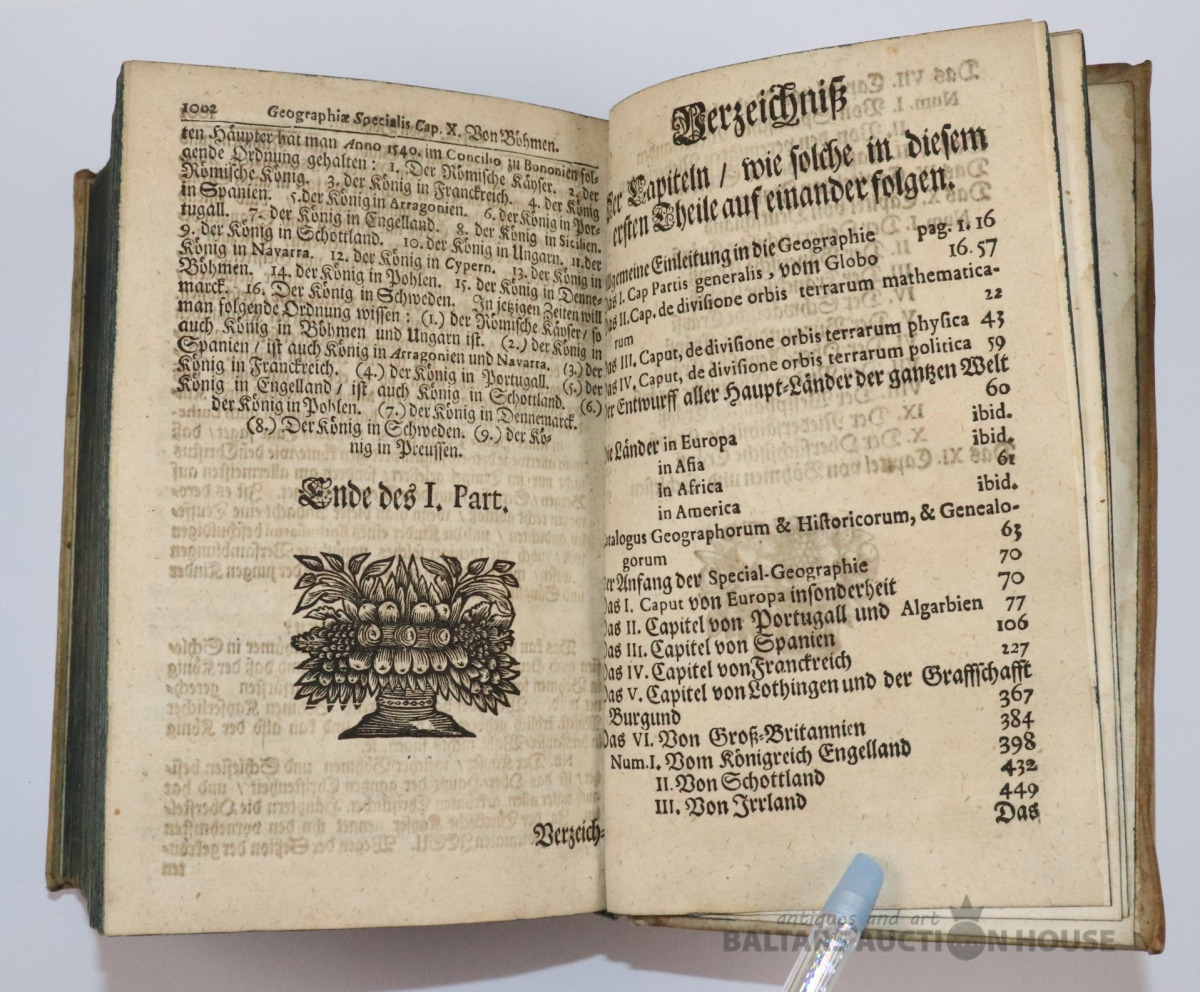 1002 Geographiæ Specialis Cap. X. Von Böhmen.
ten Häupter hat man Anno 1540. im Concilio zu Bononien fol-
gende Ordnung gehalten: 1. Der Römische Käyser. 2. der
Römische König. 3. der König in Franckreich. 4. der König
in Spanien. 5. der König in Arragonien. 6. der König in Por-
tugall. 7. der König in Engelland. 8. der König in Sicilien.
9. der König in Schottland. 10. der König in Ungarn. 11. der
König in Navarra. 12. der König in Cypern. 13. der König in
Böhmen. 14. der König in Pohlen. 15. der König in Denne-
marck. 16. Der König in Schweden. In jetzigen Zeiten will
man folgende Ordnung wissen: (1.) der Römische Käyser/ so
auch König in Böhmen und Ungarn ist. (2.) der König in
Spanien/ ist auch König in Arragonien und Navarra. (3.) der
König in Franckreich. (4.) der König in Portugall. (5.) der
König in Engelland/ ist auch König in Schottland. (6.)
der König in Pohlen. (7.) der König in Dennemarck.
(8.) Der König in Schweden. (9.) der Kö-
nig in Preussen.
Ende des I. Part.
Verzeich-
Verzeichniß
der Capiteln / wie solche in diesem
ersten Theile auf einander folgen.
lgemeine Einleitung in die Geographie pag. 1. 16
as I. Cap Partis generalis, vom Globo 16. 57
as II. Cap. de divisione orbis terrarum mathematica-
rum 22
as III. Caput, de divisione orbis terrarum physica 43
as IV. Caput, de divisione orbis terrarum politica 59
er Entwurff aller Haupt-Länder der gantzen Welt
60
ie Länder in Europa ibid.
in Asia ibid.
in Africa 61
in America ibid.
atalogus Geographorum & Historicorum, & Genealo-
gorum 63
er Anfang der Special-Geographie 70
as I. Caput von Europa insonderheit 70
as II. Capitel von Portugall und Algarbien 77
as III. Capitel von Spanien 106
as IV. Capitel von Franckreich 127
as V. Capitel von Lothingen und der Graffschafft
Burgund 367
as VI. Von Groß-Britannien 384
Num. I. Vom Königreich Engelland 398
II. Von Schottland 432
III. Von Irrland 449
Das
antiques and art
BALTARS AUCTION HOUSE